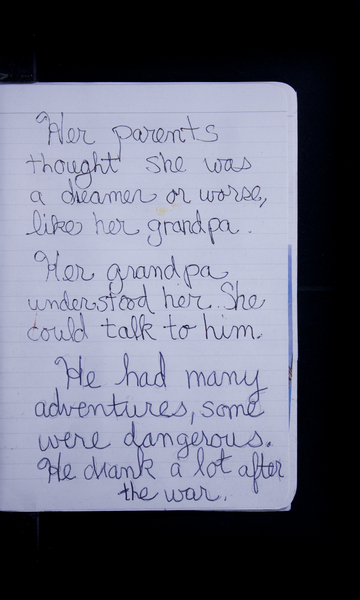 Her parents
thought she was
a dreamer or worse,
like her grandpa.
Her grandpa
understood her. She
could talk to him.
He had many
adventures, some
were dangerous.
He drank a lot after
the war.